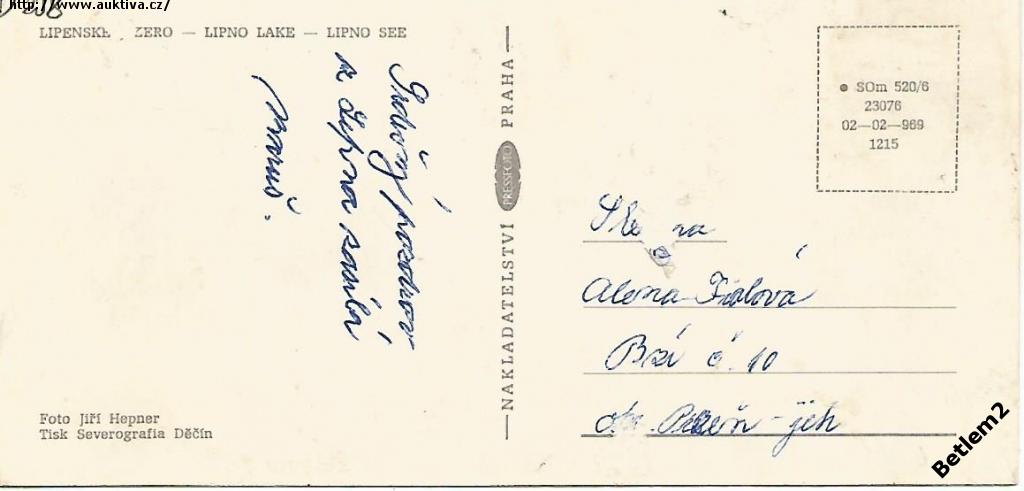 http://www.auktiva.cz/
LIPENSKÉ ZERO — LIPNO LAKE — LIPNO SEE
Srdečný pozdrav
z Lipna zasílá
Maruš.
Foto Jiří Hepner
Tisk Severografia Děčín
NAKLADATELSTVÍ PRESSFOTO PRAHA
SOm 520/6
23076
02-02-969
1215
Alena Fialová
Bzí č. 10
Plzeň-jih
Betlem2